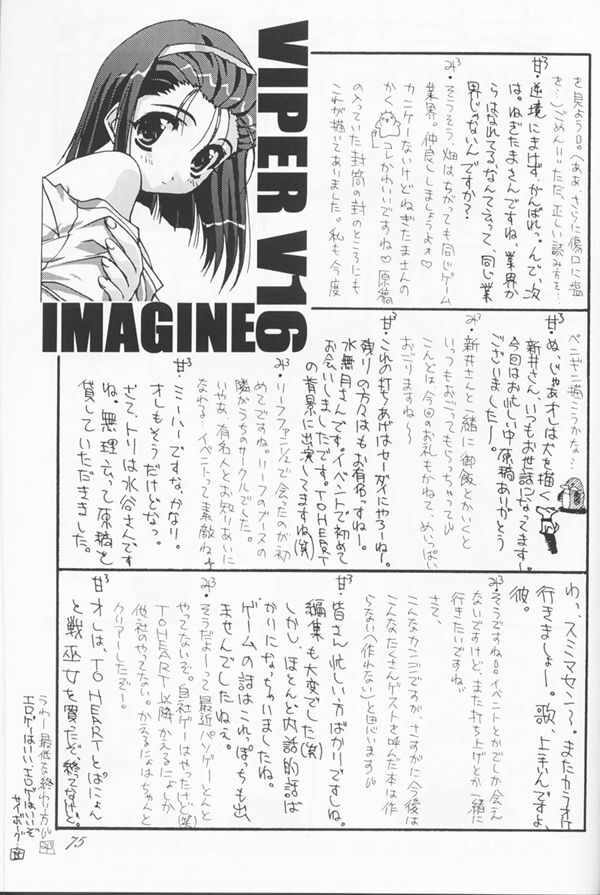 VIPER V16
IMAGINE
を見よう日。(ああ、さらに傷口に塩
を…)ごめん!!ただ、正しい読み方を…
甘³・逆境にまけず、がんばれ、っんで、次
は。ねぎたまさんですね、業界か
らはなれてる、なんて云って、同じ業
界じゃないんですか?
み³・そうそう、畑はちがっても同じゲーム
業界。仲良ししましょうよォ♡
カンケーないけどねぎたまさんの
かく コレかわいいですね♡原稿
の入っていた封筒の封のところにも
これが描いてありました。私も今度
ペニギニ描こうかな…
甘³・ぬ、じゃあオレは犬を描く
新井さん、いつもお世話になってます!
今回はお忙しい中原稿ありがとう
ございました〜。
み³・新井さんと一緒に御飯とかいくと
いっつもおごってもらっちゃって
こんどは今回のお礼もかねて、めいっぱい
おごりますね〜
甘³・これの打ちあげはセーダイにやろーね。
残りの方々はもお有名っすねー。
水無月さんです。イベントで初めて
お会いしましたです。TO HEART
の背景に出演してますね(笑)
み³・リーフファンジンで会ったのが初
めてですね。リーフのブースの
隣がうちのサークルでした。
いやぁ、有名人とお知りあいに
なれる…イベントって素敵ねっ
甘³・ミーハーですな、かなり。
オレもそうだけどなっ。
さて、トリは水谷さんです
ね。無理云って原稿を
貸していただきました。
わ、、スミマセンっ。またカラオケ
行きましょー。歌、上手いんですよ、
彼。
み³・そうですねっ。イベントとかでしか会え
ないですけど、また打ち上げとか一緒に
行きたいですね
さて、
こんなカンジですが、さすがに今後は
こんなたくさんゲストを呼んだ本は作
らない(作れない)と思います
甘³・皆さん忙しい方ばかりですしね。
編集も大変でした(笑)
しかし、ほとんど内話的話ば
かりになっちゃいましたね。
ゲームの話はこれっぽっちも出
ませんでしたねぇ。
み³・そうだよーって最近パソゲーとんと
やってないぞ。自社ゲーはやったけど(笑)
TO HEART以降かえるにょしか
他社のやってない。かえるにょはちゃんと
クリアーしたぞー。
甘³・オレは、TO HEARTとぱにょん
と戦巫女を買ったぞ、終ってないけど。
うわー最低な終わり方
エロゲーはいいエロゲーはいいぞ
75